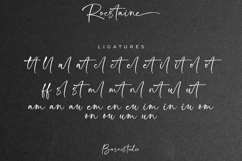 Roestaine
LIGATURES
tt ll al at cl ct el et il it ol ot
ff sl st ml mt nl nt ul ut
am an au em en eu im in iu om
on ou um un